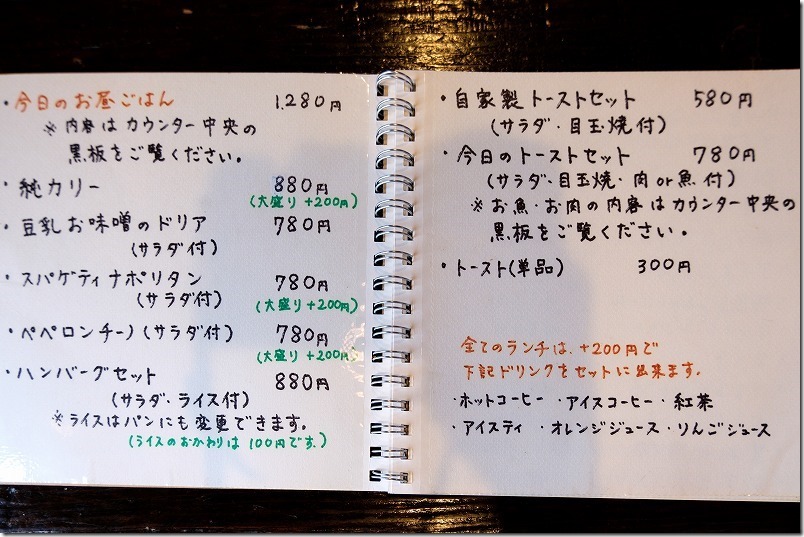 ・今日のお昼ごはん 1,280円
※内容はカウンター中央の
黒板をご覧ください。
・純カリー 880円
(大盛り+200円)
・豆乳お味噌のドリア 780円
(サラダ付)
・スパゲティナポリタン 780円
(サラダ付) (大盛り+200円)
・ペペロンチーノ(サラダ付) 780円
(大盛り+200円)
・ハンバーグセット 880円
(サラダ・ライス付)
※ライスはパンにも変更できます。
(ライスのおかわりは100円です。)
・自家製トーストセット 580円
(サラダ・目玉焼付)
・今日のトーストセット 780円
(サラダ・目玉焼・肉or魚付)
※お魚・お肉の内容はカウンター中央の
黒板をご覧ください。
・トースト(単品) 300円
全てのランチは、+200円で
下記ドリンクをセットに出来ます。
・ホットコーヒー ・アイスコーヒー ・紅茶
・アイスティ ・オレンジジュース ・りんごジュース